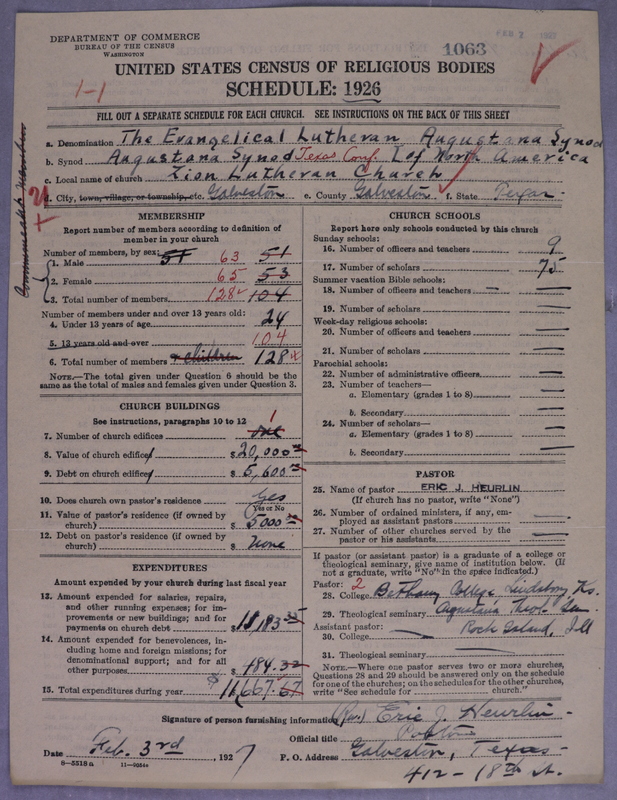 DEPARTMENT OF COMMERCE
BUREAU OF THE CENSUS
WASHINGTON
1063
UNITED STATES CENSUS OF RELIGIOUS BODIES
1-1
SCHEDULE: 1926
FILL OUT A SEPARATE SCHEDULE FOR EACH CHURCH. SEE INSTRUCTIONS ON THE BACK OF THIS SHEET
a. Denomination The Evangelical Lutheran Augustana Synod
b. Synod Augustana Synod Texas Conf. of North America
c. Local name of church Zion Lutheran Church
d. City, town, village, or township, etc. Galveston e. County Galveston f. State Texas
MEMBERSHIP
Report number of members according to definition of
member in your church
Number of members, by sex:
1. Male 51 63 51
2. Female 65 53
3. Total number of members 128 104
Number of members under and over 13 years old:
4. Under 13 years of age 24
5. 13 years old and over 104
6. Total number of members + children 128
NOTE.—The total given under Question 6 should be the
same as the total of males and females given under Question 3.
CHURCH BUILDINGS
See instructions, paragraphs 10 to 12
7. Number of church edifices one 1
8. Value of church edifices $ 20,000
9. Debt on church edifices $ 5,600
10. Does church own pastor's residence Yes
Yes or No
11. Value of pastor's residence (if owned by
church) $ 5000
12. Debt on pastor's residence (if owned by
church) $ none
EXPENDITURES
Amount expended by church during last fiscal year
13. Amount expended for salaries, repairs,
and other running expenses; for im-
provements or new buildings; and for
payments on church debt $ 11,183
14. Amount expended for benevolences, in-
cluding home and foreign missions; for
denominational support; and for all
other purposes $ 484.32
15. Total expenditures during year $ 11,667.67
CHURCH SCHOOLS
Report here only schools conducted by this church
Sunday schools:
16. Number of officers and teachers 9
17. Number of scholars 75
Summer vacation Bible schools:
18. Number of officers and teachers —
19. Number of scholars —
Week-day religious schools:
20. Number of officers and teachers —
21. Number of scholars —
Parochial schools:
22. Number of administrative officers —
23. Number of teachers—
a. Elementary (grades 1 to 8) —
b. Secondary —
24. Number of scholars—
a. Elementary (grades 1 to 8) —
b. Secondary —
PASTOR
25. Name of pastor ERIC J. HEURLIN
(If church has no pastor, write "None")
26. Number of ordained ministers, if any, em-
ployed as assistant pastors —
27. Number of other churches served by the
pastor or his assistants —
If pastor (or assistant pastor) is a graduate of a college or
theological seminary, give name of institution below. (If
not a graduate, write "No" in the space indicated.)
Pastor: 2
28. College Bethany College Lindsborg, Ks.
29. Theological seminary Augustana Theol. Sem.
Assistant pastor: Rock Island, Ill
30. College —
31. Theological seminary —
NOTE.—Where one pastor serves two or more churches,
Questions 28 and 29 should be answered only on the schedule
for one of the churches; on the schedules for the other churches,
write "See schedule for church."
Signature of person furnishing information (Rev.) Eric J. Heurlin
Official title Pastor
Date Feb. 3rd, 1927 P. O. Address Galveston, Texas
8-5518a 11-9554
412 - 18th St.